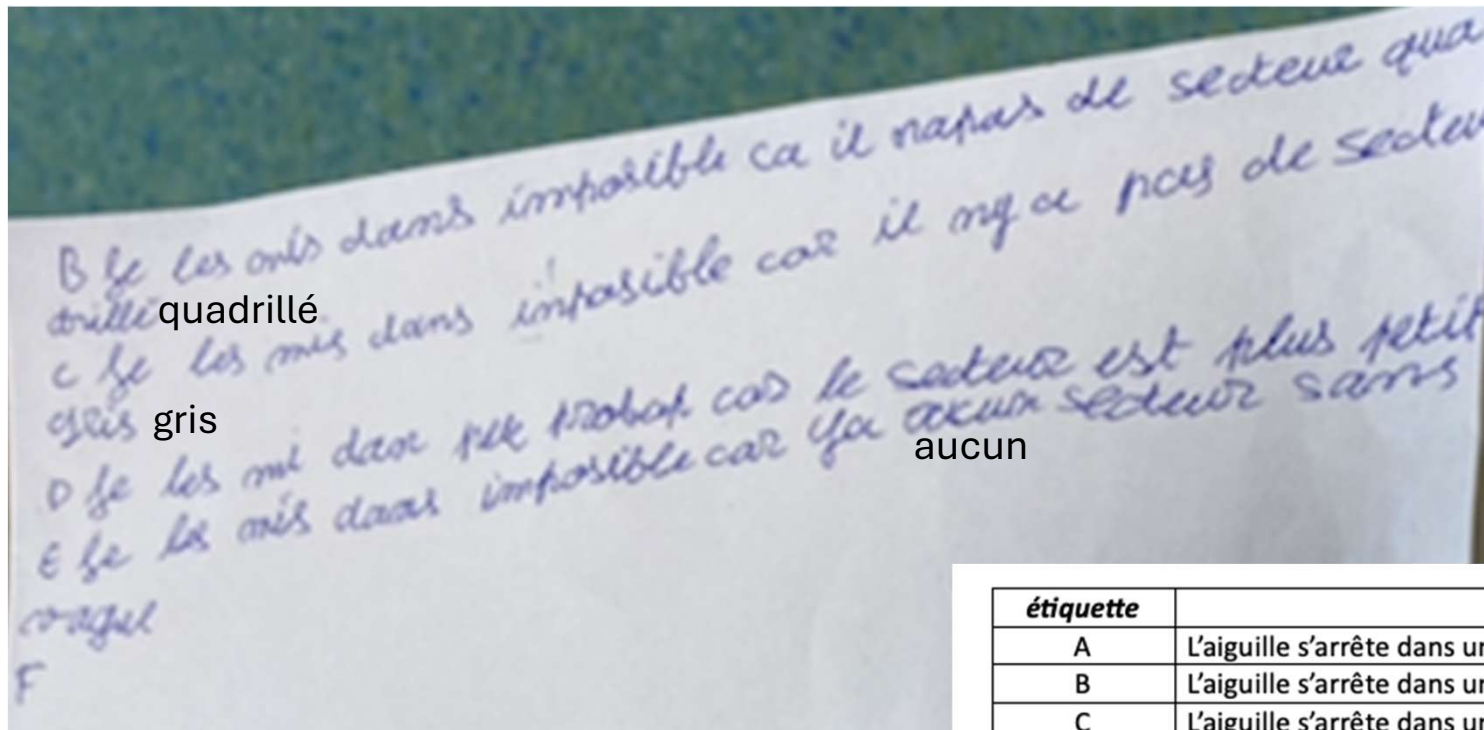 B Je les mis dans imposible ca il napas de secteur qua
drillé quadrillé
c Je les mis dans imposible car il ny a pas de secteu
gris gris
D Je les mi dan peu probap car le secteur est plus petit
E Je les mis dans imposible car ya aucun secteur sans
aucun
vague
F
étiquette
A L'aiguille s'arrête dans un
B L'aiguille s'arrête dans un
C L'aiguille s'arrête dans un